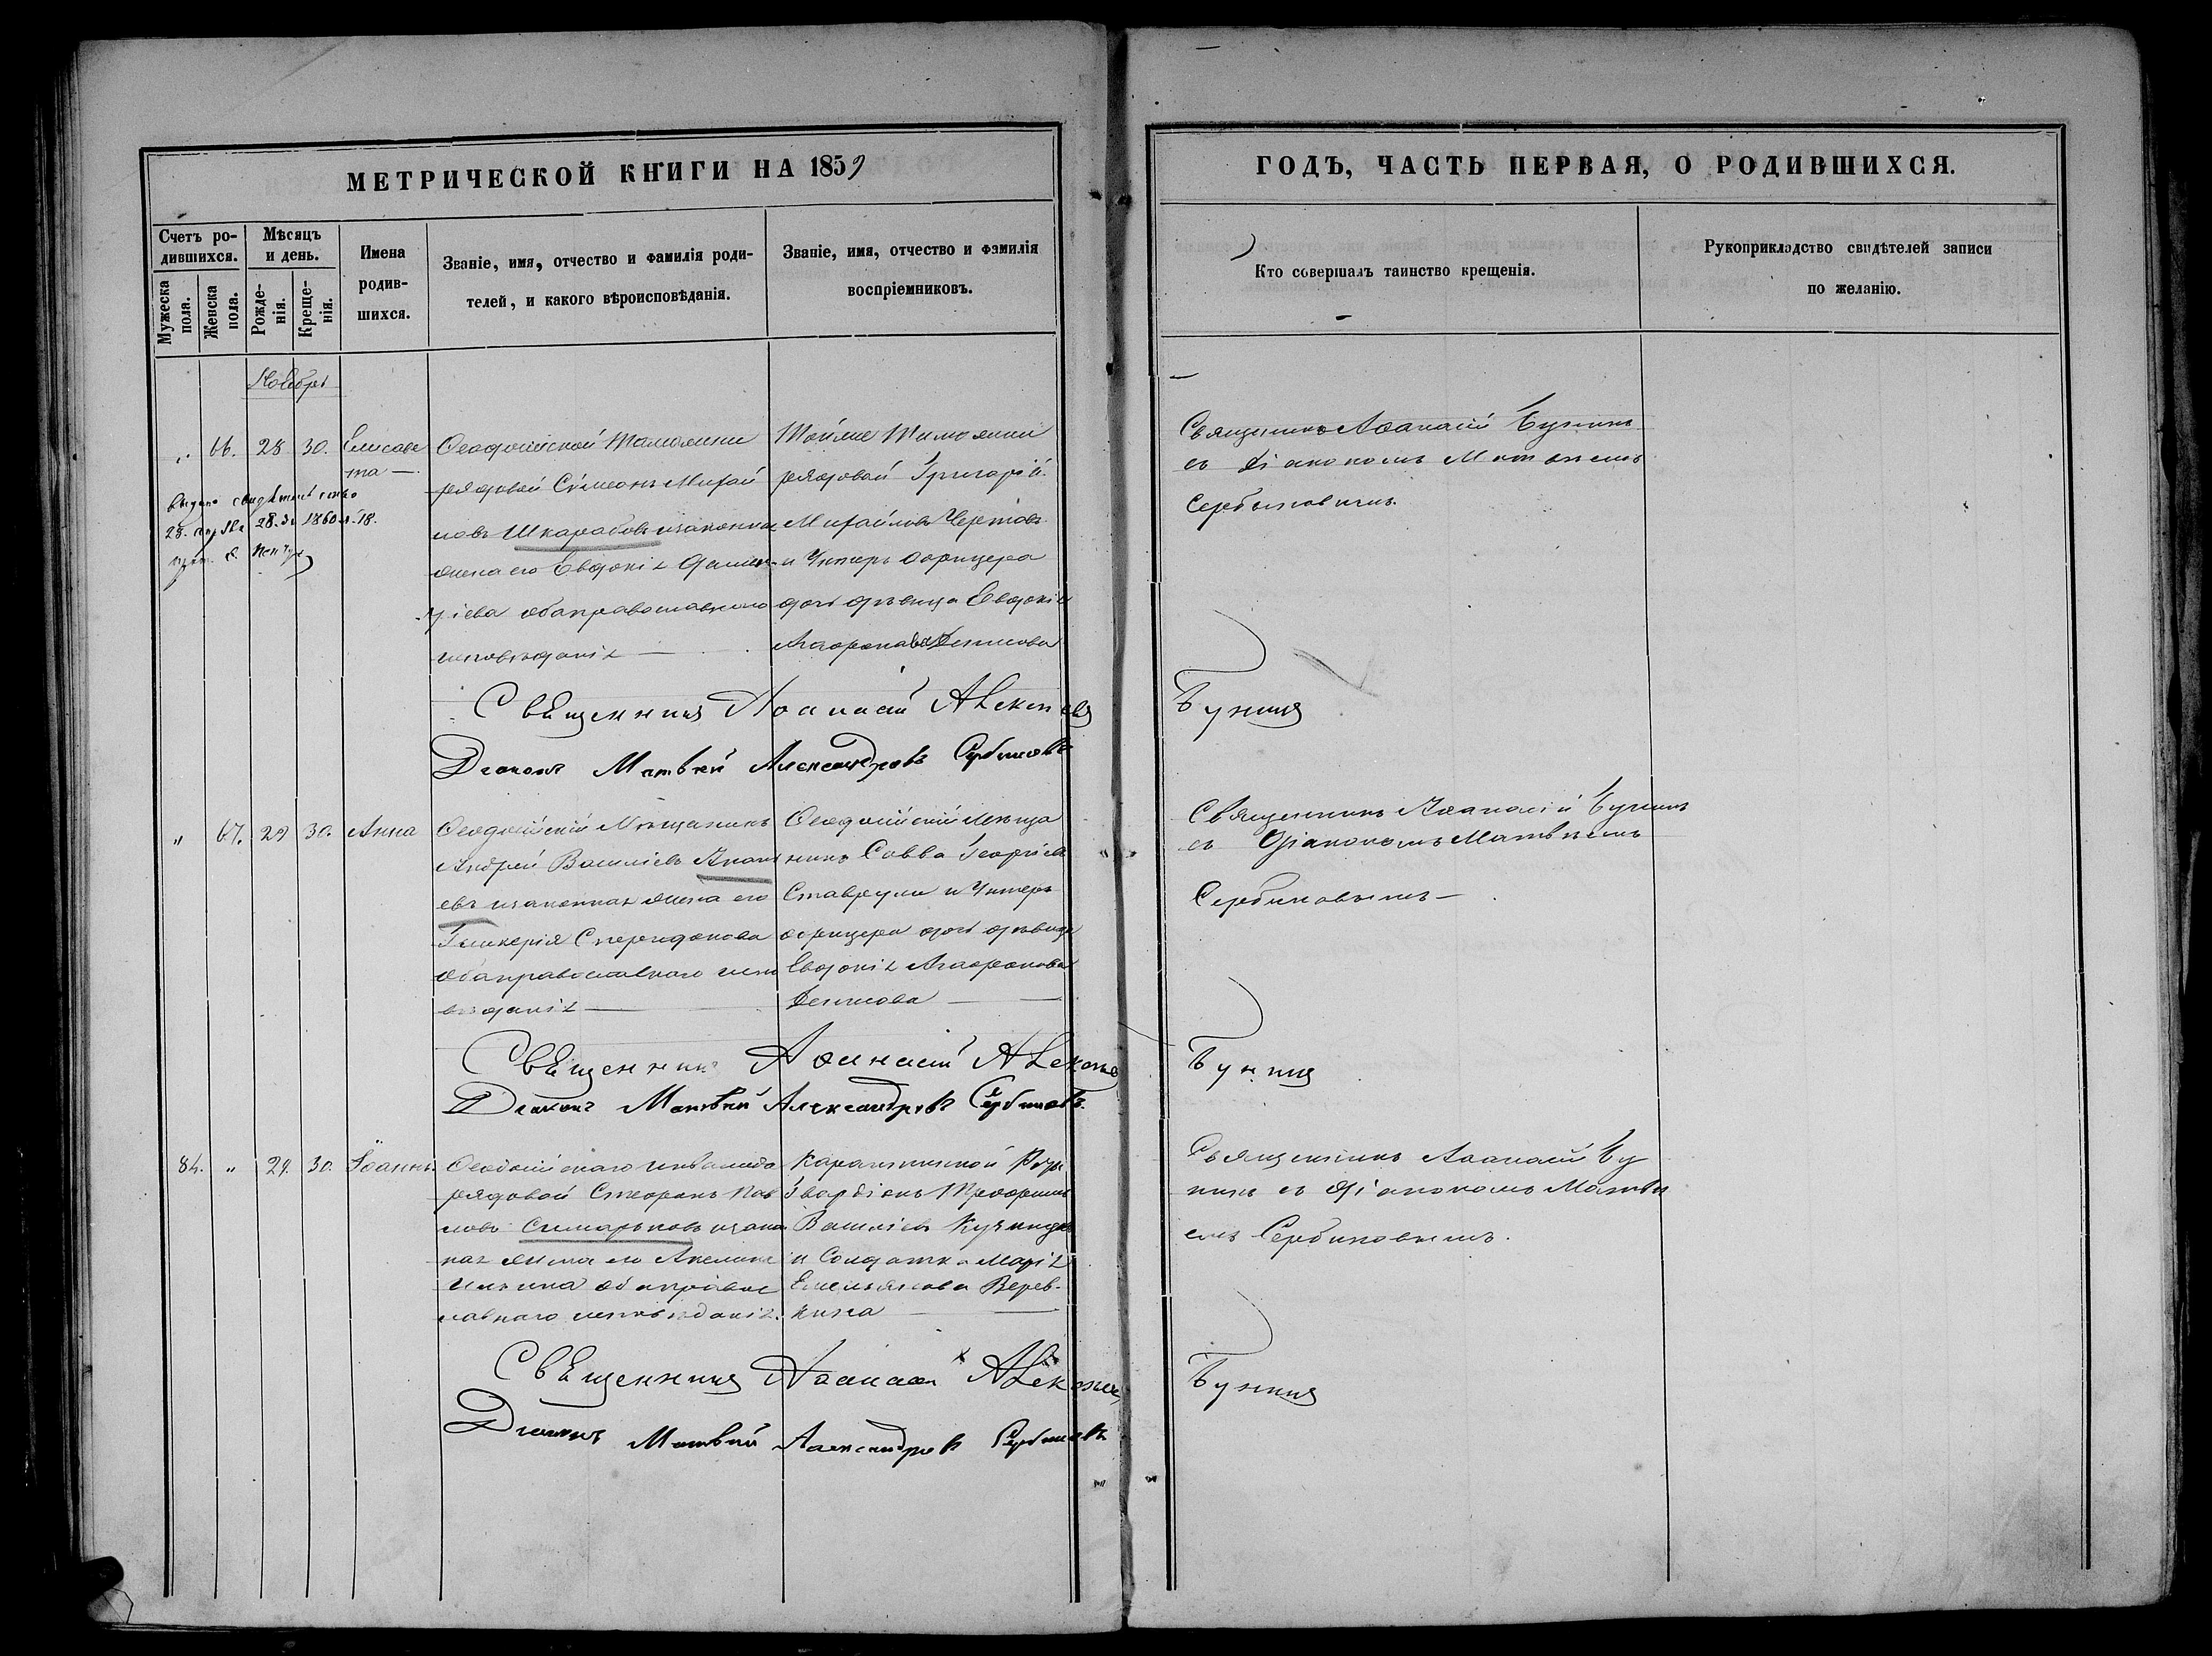 МЕТРИЧЕСКОЙ КНИГИ НА 1859
ГОДЪ, ЧАСТЬ ПЕРВАЯ, О РОДИВШИХСЯ.
Счетъ родившихся.
Мужеска пола.
Женска пола.
Мѣсяцъ и день.
Рожденія.
Крещенія.
Имена родившихся.
Званіе, имя, отчество и фамилія родителей, и какого вѣроисповѣданія.
Званіе, имя, отчество и фамилія воспріемниковъ.
Кто совершалъ таинство крещенія.
Рукоприкладство свидѣтелей записи по желанію.
Ноябрь
„ 66. 28 30. Елисавета
Ѳеодосійской Таможни
рядовой Симеонъ Михай
ловъ Шкарабовъ и законная
жена его Евдокія Димит
ріева оба православнаго
исповѣданія
Тойже Таможни
рядовой Григорій
Михайловъ
и Унтеръ офицера
дочь дѣвица Евдокія
Денисова
Священникъ Аѳанасій Бунинъ
съ діакономъ Матѳеемъ
Сербиновымъ.
28. 1860 18.
Священникъ Аѳанасій Алексіевъ Бунинъ
Діаконъ Матвѣй Александровъ Сербиновъ
„ 67. 29 30. Анна
Ѳеодосійскій Мѣщанинъ
Андрей Василіевъ
евъ и законная жена его
Гликерія Спиридонова
оба православнаго испо
вѣданія
Ѳеодосійскій Мѣща
нинъ Савва Георгіевъ
Ставрули и Унтеръ
офицера дочь дѣвица
Евдокія
Денисова
Священникъ Аѳанасій Бунинъ
съ Діакономъ Матвѣемъ
Сербиновымъ
Священникъ Аѳанасій Алексіевъ Бунинъ
Діаконъ Матвѣй Александровъ Сербиновъ.
84. „ 29. 30. Іоаннъ
Ѳеодосійскаго инвалида
рядовой Стефанъ Пав
ловъ и закон
ная жена его Акелина
Ильина оба правос
лавнаго исповѣданія.
Карантинной Роты
Гвардіонъ Трофимъ
Василіевъ
и Солдатка Марія
Емельянова Верев-
кина
Священникъ Аѳанасій Бу
нинъ съ Діакономъ Матвѣ
емъ Сербиновымъ.
Священникъ Аѳанасій Алексіевъ Бунинъ
Діаконъ Матвѣй Александровъ Сербиновъ